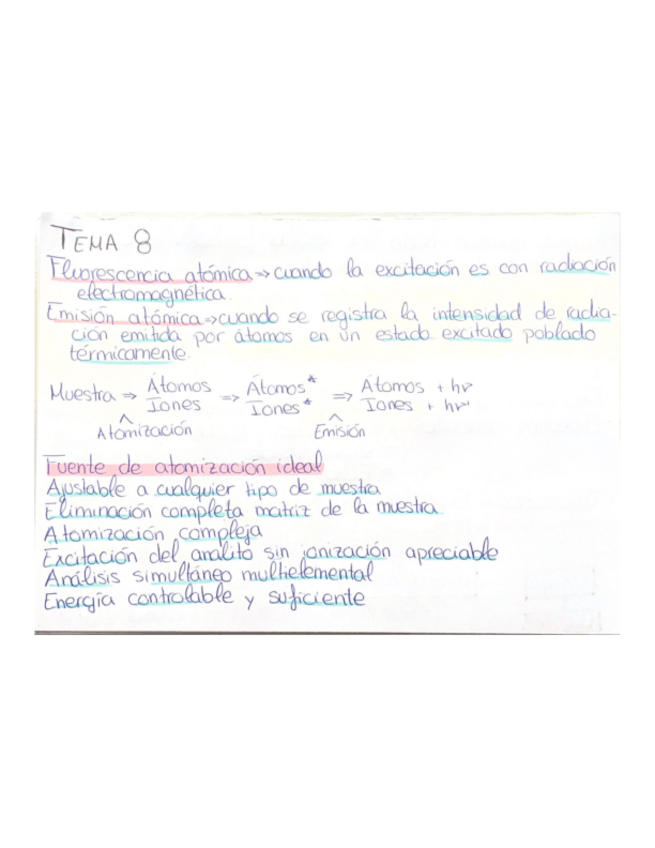 TEMA 8
Fluorescencia atómica => cuando la excitación es con radiación
electromagnética.
Emisión atómica => cuando se registra la intensidad de radia-
ción emitida por átomos en un estado excitado poblado
térmicamente.
Muestra => Átomos / Iones => Átomos* / Iones* => Átomos + hν / Iones + hν'
Atomización Emisión
Fuente de atomización ideal
Ajustable a cualquier tipo de muestra
Eliminación completa matriz de la muestra
Atomización compleja
Excitación del analito sin ionización apreciable
Análisis simultáneo multielemental
Energía controlable y suficiente